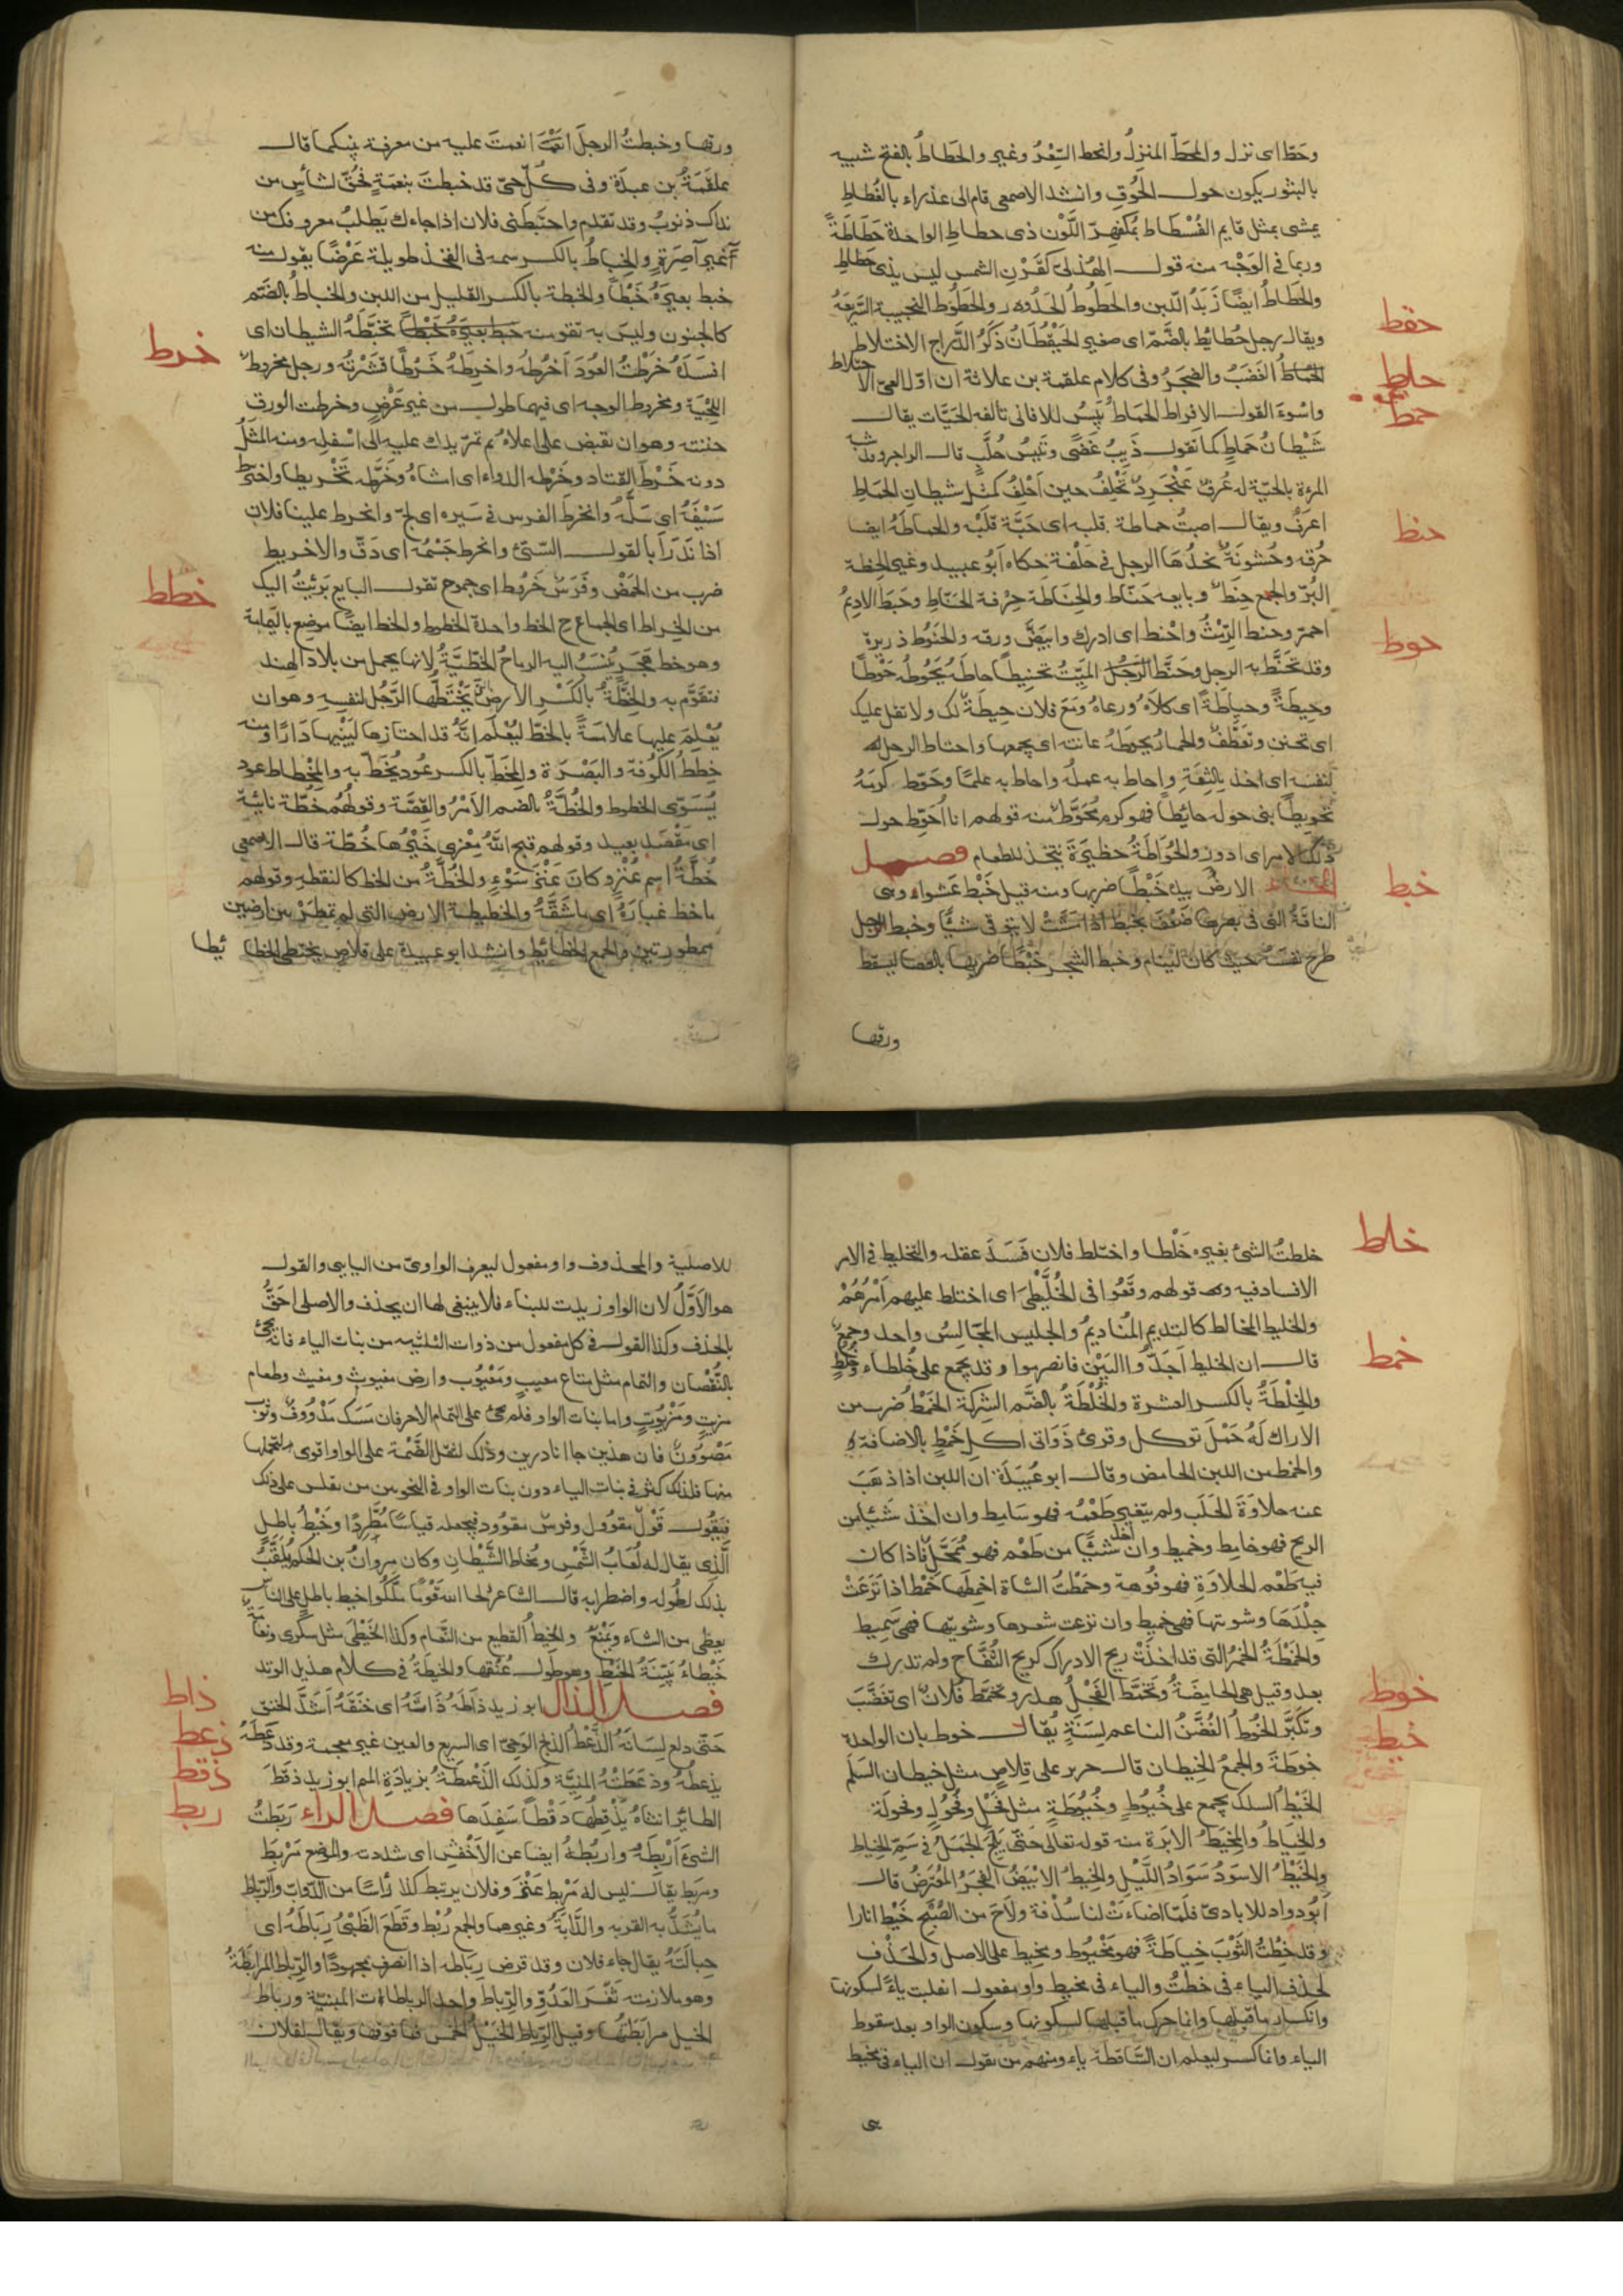 وحَطّ اى نزل والمحَطّ المنزِلُ وانحط السِّعْرُ وغيره والحَطَاطُ بالفتح شبيه
بالبثور يكون حول الحُوقِ وانشد الاصمعى قام الى عذراء بالغُطَاطِ
يمشى بمثل قايم الفُسْطَاط بمُكفَهِرّ اللَّوْن ذى حطاطِ الواحدة حَطَاطَةً
وربما فى الوَجْه منه قول الهُذلىّ كقَرْنِ الشمس ليس بذى حَطَاطِ
والحَطَاطُ ايضًا زَبَدُ اللّبن والحَطُوطُ الحَدُور والحَطُوط النجيبة السَّريعَةُ
ويقال رجل حُطايُط بالضَّمّ اى صغير الحَيْقُطَانُ ذَكَرُ الدَّراج الاختلاط
الغَضَبُ والضجَرُ وفى كلام علقمة بن علاثة ان اوّل العىّ الاحتلاط
واسْوءَ القول الافراط الحَمَاطُ يَبِيسُ للافانى تالفه الحَيَّات يقال
شَيْطَانُ حَمَاطٍ كما تقول ذيبُ غَضًى وتَيْسُ حُلَّبٍ قال الراجز وقد شبه
المرءة بالحيّة له عُرفٌ عَنْجَرِدٌ تَحْلِفُ حين اَحْلِفُ كمثل شيطانِ الحَمَاطِ
اعرَفُ ويقال اصبتُ حماطة قلبه اى حَبَّة قَلْبِه والحماطَةُ ايضا
حُرقه وخُشونَةٌ يجدُهَا الرجل فى حَلْقه حكاه اَبُو عبيد وغيره الحِنطة
البُرّ والجمع حِنَطٌ وبايعه حَنَّاط والحِنَاطَة حِرْفة الحَنّاطِ وحَنَطَ الاديمُ
احمرّ وحنط الرِّمْثُ واحْنط اى ادرك وابيَضَّ ورقه والحَنُوطُ ذريرة
وقد تحَنَّط به الرجل وحَنَّط الرَجُل الميِّتَ تحنيطًا حاطَه يَحُوطُه حَوْطًا
وحِيطَةً وحِيَاطَةً اى كلاَهُ ورعاهُ ومَعَ فلان حِيطَةٌ لك ولا تقل عليك
اى تحنن وتعَطُّفٌ والحمارُ يَحوطُ عانته اى يجمعها واحتاط الرجل
لنفسه اى اخذ بالثِقَةِ واحاط به عِلمُه واحاط به علمًا وحَوّط كرمَهُ
تحويطًا بنى حوله حايطًا فهو كرم مُحَوَّطٌ منه قولهم انا اُحَوِّط حول
ذلك الامر اى ادور والحُوَاطَةُ حظيرَةٌ تتخذ للطعام فصل
الخاء الارضَ بيده خَبْطًا ضربها ومنه قيل خَبْط عَشْواء وهى
الناقَةُ التى فى بصرها ضَعْفٌ تخبط اذا مَشَتْ لا تتوقى شيًا وخبط الرجل
طرح نفسه حيث كان لينام وخبط الشجر خَبْطًا ضربها بالعصا ليسقط
ورقها
حقط
حلط
حمط
حنط
حوط
خبط
ورقها وخبطتُ الرجلَ انعمتَ عليه من معرفة بينكما قال
علقَمَةُ بن عبدَة وفى كلّ حىّ قد خبطتَ بنِعمَةٍ فحُقَّ لشأسٍ من
نداك ذنوبُ وقد تقدم واختبَطنى فلان اذا جاءك يَطلبُ معروفك من
غير آصِرَةٍ والخِبَاطُ بالكسر سمه فى الفخذ طويلة عَرْضًا يقول منه
خبط بعيرَهُ خَبْطًا والخبطة بالكسر القليل من اللبن والخباطُ بالضَّم
كالجنون وليسَ به تقو منه خبط بعيرَهُ خَبْطًا تخبَّطَهُ الشيطان اى
افسَدَهُ خَرَطْتُ العُودَ اَخرُطُه واخرِطُهُ خَرْطًا قَشَرْتُه ورجل مخروطُ
اللِّحْيَة ومخروط الوجه اى فيهما طول من غير عَرْضٍ وخرطت الورق
حتته وهو ان تقبض على اعلاهُ ثم تمرّ يدك عليه الى اسْفله ومنه المثَلُ
دونه خَرْطُ القتاد وخَرَطه الدواء اى امشاهُ وخَرَّطه تَخْريطا واخترط
سَيْفَهُ اى سَلَّهُ وانخرطَ الفرس فى سَيره اى لجّ وانخرط علينا فلان
اذا نَدَرَأ بالقول السَّيّئ وانخرط جَسْمُه اى دَقّ والاخريط
ضرب من الحَمْضِ وفَرَسٌ خَرُوط اى جموح تقول البايع بَرِئْتُ اليك
من الخِراط اى الجماع ج الخط واحدة الخطوط والخط ايضًا موضع باليَمَامَة
وهو خط هَجَرَ يُنسَبُ اليه الرماحُ الخَطّيَّةُ لانها يحمل من بلاد الهِند
فتقَوّم به والخِطَّةُ بالكَسْرِ الارض يَخْتَطُّها الرَّجُل لنفسِهِ وهو ان
يُعْلِمَ عليها عَلامَةً بالخطّ ليُعْلَم انَّهُ قد احتازها ليَبْنِيها دَارًا ومنه
خِطَطُ الكُوفَة والبَصْرَة والمخطّ بالكسر عُود يُخَطّ به والمِخْطاط عود
يُسَوّى الخطوط والخُطَّةُ بالضم الاَمْرُ والقِصَّة وقولهُم خُطّة نائية
اى مَقْصَد بعيد وقولهم قبح اللهُ مِعْزى خَيْرُها خُطّة قال الاصمعى
خُطَّةُ اسم عَنْزٍ وكانَ عَنْزَ سَوْءٍ والخُطَّةُ من الخط كالنقطه وقولهم
ما خطّ غبارَهُ اى ما شَقَّهُ والخطيطة الارض التى لم تمطَرْ بين ارضين
ممطورتين والجمع الخطائيط وانشد ابو عبيدة على قلاصٍ يختطى الخطا ئطا
خرط
خطط
خلطتُ الشئ بغيره خَلْطا واختلط فلان فَسَدَ عقله والتخليط فى الامر
الافساد فيه وقولهم وقَعُوا فى الخُلَّيْطَى اى اختلط عليهم اَمرُهُمْ
والخليط المخالط كالنديم المُنَاديمُ والجليس المجَالِسُ واحد وجمعٌ
قال ان الخليط اَجَدُّوا البَيْنَ فانصرموا وقد يجمع على خُلطاء وخُلُطٍ
والخِلْطَةُ بالكسر العشرة والخُلْطَةُ بالضَّم الشِركة الخَمْطُ ضرب من
الاراك لَهُ حَمْلٌ توكل وقرئ ذَوَاتى اكلِ خَمْطٍ بالاضافة
والخمط من اللبن الحامض وقال ابو عُبَيدَة ان اللبن اذا ذهَبَ
عنه حلاوَةَ الحَلَب ولم يتغير طَعْمُه فهو سَامِط وان اخذ شيْئا من
الريح فهو خامِط وخميط وان اخذ شيًّا من طَعْم فهو مُمَحَّل فاذا كان
فيه طَعْم الحلاوَةِ فهو فُوهة وخمَطْتُ الشاة اخمِطُها خمْطا اذا نَزَعْتَ
جِلْدَهَا وشويتها فهى خميط وان نزعت شعرها وشويتها فهى سَميط
والخَمْطَةُ الخمْرُ التى قد اخذَتْ ريح الادراك كريح التُّفَّاح ولم تدرك
بعد وقيل هى الحامِضَةُ وتخَمَّط الفَحْلُ هدر وتخمّطَ فُلانٌ اى تغضَّبَ
وتكَبَّرَ الخُوطُ الغُصْنُ الناعم لِسَنَةٍ يُقال خوط بان الواحدة
خوطَةٌ والجمعُ الخِيطان قال جرير على قِلاصٍ مثل خيطان السَلَم
الخَيْطُ السلك يجمع على خُيُوطٍ وخُيُوطَةٍ مثل فَحْلٍ وفُحُولٍ وفحولَة
والخِيَاطُ والمِخْيَطُ الابرَة منه قوله تعالى حَتّى يَلِجَ الجَمَلُ فى سَمِّ الخِيَاط
والخَيْطُ الاسوَدُ سَوَادُ اللَّيْل والخيطُ الابْيَضُ الفجْرُ المعُتَرِضُ قال
اَبُو دواد للايادىّ فلمّا اضاءَتْ لنا سُدْفة ولاَحَ من الصُبْحِ خَيْط انارا
وقد خِطْتُ الثَوْبَ خِياطَةً فهو مَخْيُوط ومخيط على الاصل والحَذْف
لحذف الياء فى خطتُ والياء فى مخيط واو مفعول انقلبت ياءً لسكونها
وانكسار ما قبلها وانما حرك ما قبلها لسكونها وسكون الواو بعد سقوط
الياء وانما كسر ليعلم ان السَّاقطة ياء ومنهم من يقول ان الياء فى مخيط
خلط
خمط
خوط
خيط
للاصلية والمحذوف واو مفعول ليعرف الواوىّ من اليايى والقول
هو الاَوَّلُ لان الواو زيدت للبناء فلا ينبغى لها ان يحذف والاصلى احَقُّ
بالحذف وكذا القول فى كل مفعول من ذوات الثلثيه من بنات الياء فانه يجئ
بالنُّقْصان والتمام مثل متاع معيب ومَعْيُوب وارض مغيوث ومغيث وطعام
مزيتٍ ومَزْيُوتٍ واما بنات الواو فلم يجئ على التمام الا حرفان مسَك مَدْوُوفٌ وثوب
مَصْوُونٌ فان هذين جاا نادرين وذلك لثقل الضَّمة على الواو اقوى على احتمالها
منها فلذلك كثر فى بنات الياء دون بنات الواو فى النحويين من يقيس على ذلك
فيَقُول قَوْل مقوُول وفرسٌ مقوُود فيجعله قياسًا مُطَّرِدًا وخَيْط باطلٍ
الَّذِى يقال له لُعَابُ الشَّمْسِ ومُخاط الشَّيْطَانِ وكان مروانُ بن الحكم يُلقَّبُ
بذلك لطُوله واضطرابه قال الشاعر لحا الله قَوْمًا ملكُوا خيط باطلٍ على الناس
يعطى من الشاء ويَمْنَعُ والخِيطُ القطيع من النَّعام وكذا الخَيْطى مثل سَكْرى ونعامة
خَيْطاءُ بَيِّنَةُ الخَيَطِ وهو طول عُنُقها والخيطَةُ فى كلام هذيل الوتد
فصل الذال ابو زيد ذاَطَهُ ذَاْطَهُ اى خنَقَهُ اَشَدَّ الخنق
حَتّى دلع لِسَانَهُ الذَّعْطُ الذبح الوَحِىّ اى السريع والعين غير معجمة وقد ذَعَطَهُ
يذعطهُ وذعَطَتْهُ المنِيَّة وكذلك الذَعْمَطَةُ بزيادَةِ الميم ابو زيد ذقطَ
الطائر انثاه يَذْقِطُها ذَقْطاً سَفِدَها فصل الراء رَبَطتُ
الشئَ اَرْبِطُهُ واربُطهُ ايضا عن الاَخْفَشِ اى شددته والموضع مَرْبِط
ومربَط يقال ليس له مَرْبط عَنْزٍ وفلان يرتبط كذا رأسًا من الدَّوابّ والرّبَاط
ما يُشَدُّ به القربه والدَّابَةُ وغيرهما والجمع رُبُط وقَطَعَ الظَبْىُ رِبَاطَهُ اى
حِبَالَتَهُ يقال جاء فلان وقد قرض رباطَه اذا انصَرف مجهودًا والرِّباط المرابَطَةُ
وهو ملازمة ثَغْرَ العَدُوّ والرِّبَاط واحد الرباطات المبنيَّة ورباط
الخيل مرابَطَتُها وقيل الرِّباط الخَيْلُ الخَمْس فما فوقها ويقال لفلان
ذاط
ذعط
ذقط
ربط